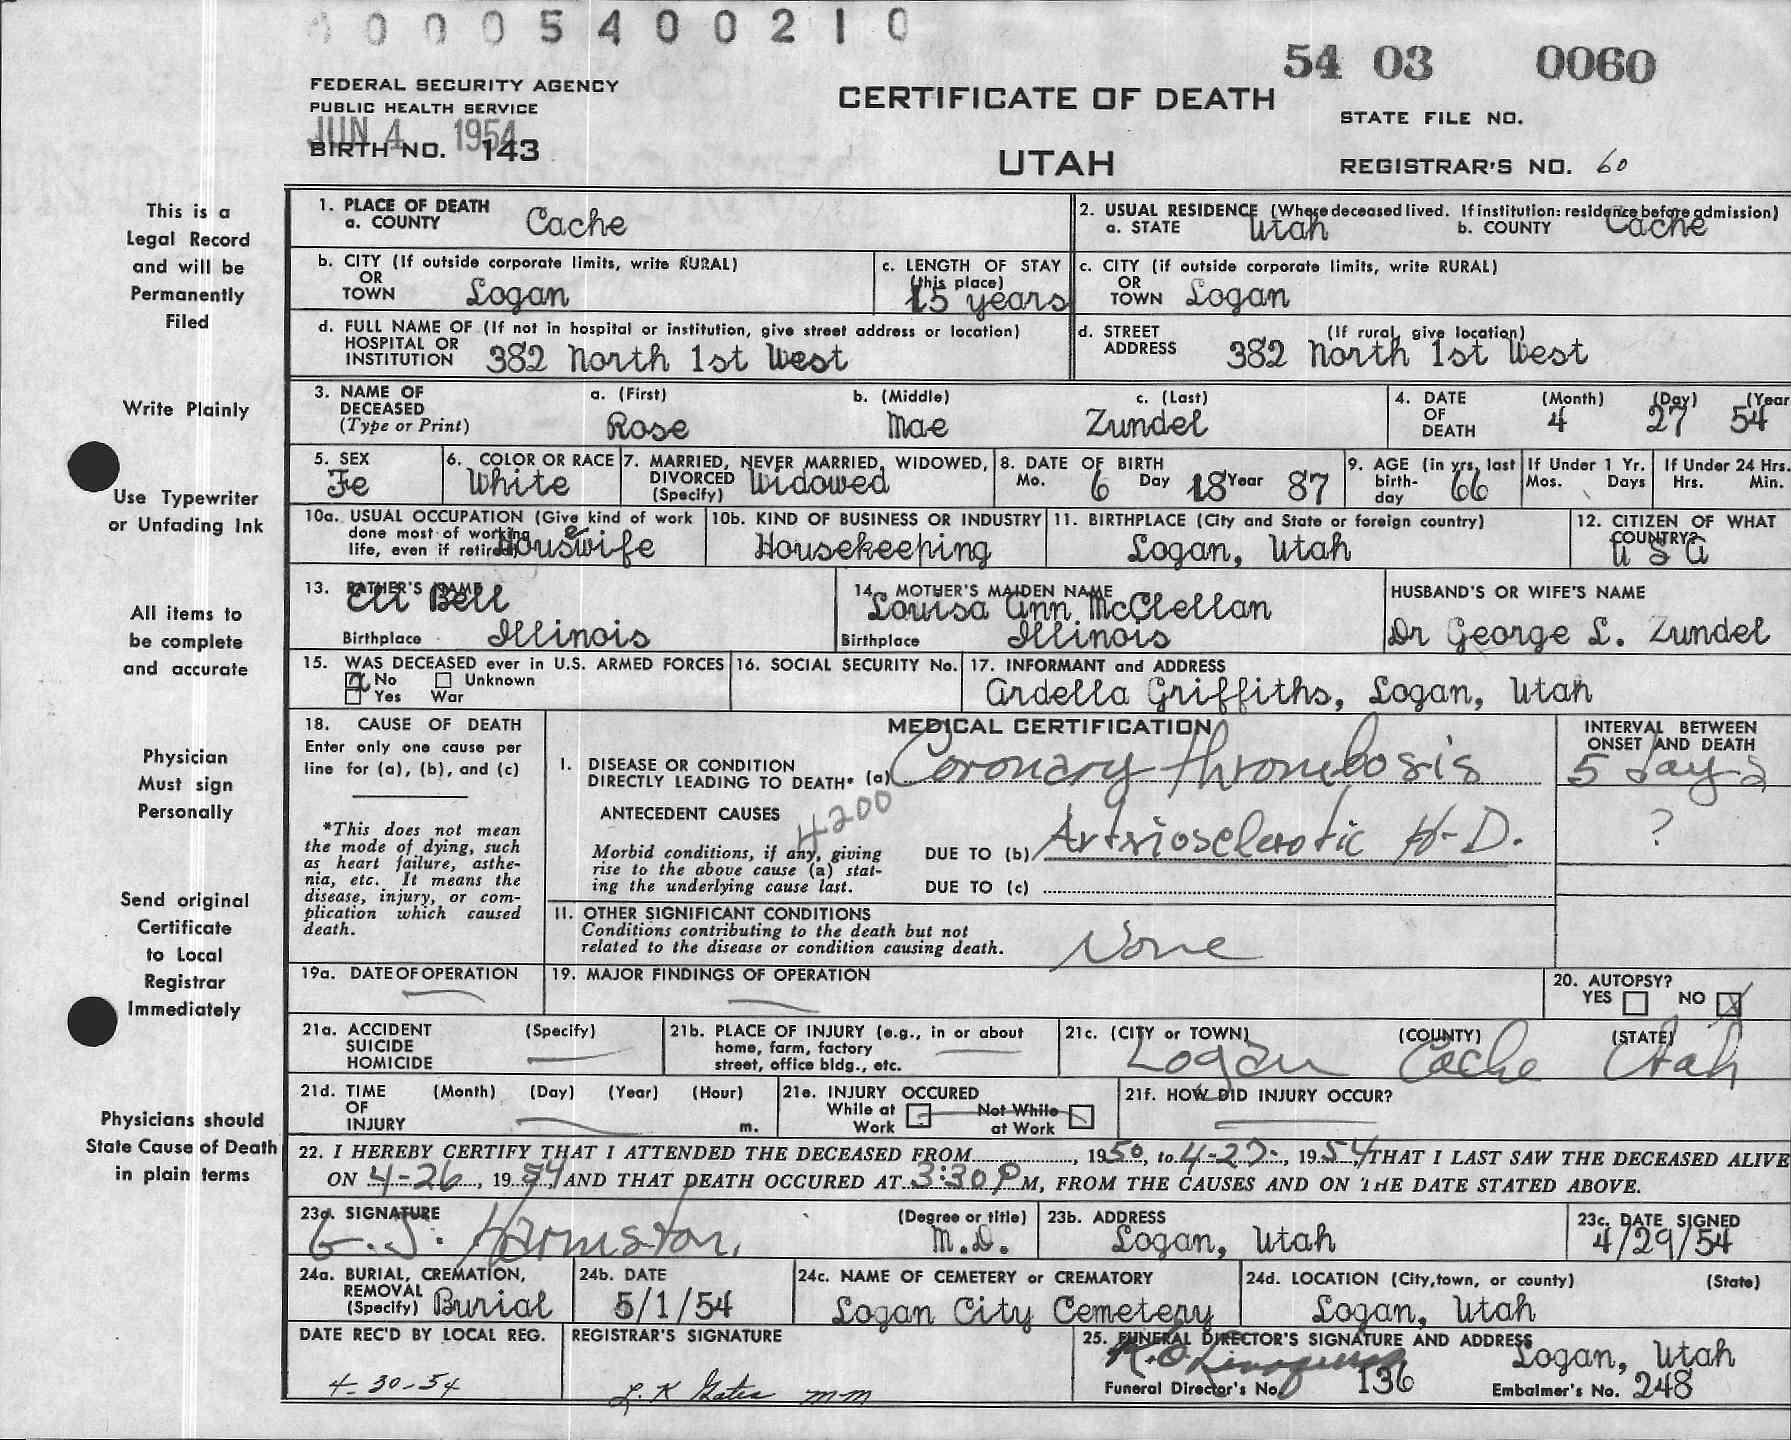 0 0 0 0 5 4 0 0 2 1 0
54 03 0060
FEDERAL SECURITY AGENCY
PUBLIC HEALTH SERVICE
JUN 4 1954
BIRTH NO. 143
CERTIFICATE OF DEATH
UTAH
STATE FILE NO.
REGISTRAR'S NO. 60
This is a
Legal Record
and will be
Permanently
Filed
Write Plainly
Use Typewriter
or Unfading Ink
All items to
be complete
and accurate
Physician
Must sign
Personally
Send original
Certificate
to Local
Registrar
Immediately
Physicians should
State Cause of Death
in plain terms
1. PLACE OF DEATH
a. COUNTY Cache
2. USUAL RESIDENCE (Where deceased lived. If institution: residence before admission)
a. STATE Utah b. COUNTY Cache
b. CITY (If outside corporate limits, write RURAL)
OR
TOWN Logan
c. LENGTH OF STAY
(this place)
15 years
c. CITY (if outside corporate limits, write RURAL)
OR
TOWN Logan
d. FULL NAME OF (If not in hospital or institution, give street address or location)
HOSPITAL OR
INSTITUTION 382 North 1st West
d. STREET (If rural, give location)
ADDRESS 382 North 1st West
3. NAME OF DECEASED (Type or Print)
a. (First) b. (Middle) c. (Last)
Rose Mae Zundel
4. DATE OF DEATH (Month) (Day) (Year
4 27 54
5. SEX
Fe
6. COLOR OR RACE
White
7. MARRIED, NEVER MARRIED, WIDOWED,
DIVORCED (Specify) Widowed
8. DATE OF BIRTH
Mo. 6 Day 18 Year 87
9. AGE (in yrs. last birth-day 66
If Under 1 Yr.
Mos. Days
If Under 24 Hrs.
Hrs. Min.
10a. USUAL OCCUPATION (Give kind of work
done most of working
life, even if retired) Housewife
10b. KIND OF BUSINESS OR INDUSTRY
Housekeeping
11. BIRTHPLACE (City and State or foreign country)
Logan, Utah
12. CITIZEN OF WHAT
COUNTRY?
U S A
13. FATHER'S NAME
Eli Bell
Birthplace Illinois
14. MOTHER'S MAIDEN NAME
Louisa Ann McClellan
Birthplace Illinois
HUSBAND'S OR WIFE'S NAME
Dr George L. Zundel
15. WAS DECEASED ever in U.S. ARMED FORCES
No Unknown
Yes War
16. SOCIAL SECURITY No.
17. INFORMANT and ADDRESS
Ardella Griffiths, Logan, Utah
18. CAUSE OF DEATH
Enter only one cause per
line for (a), (b), and (c)
*This does not mean
the mode of dying, such
as heart failure, asthe-
nia, etc. It means the
disease, injury, or com-
plication which caused
death.
MEDICAL CERTIFICATION
INTERVAL BETWEEN
ONSET AND DEATH
I. DISEASE OR CONDITION
DIRECTLY LEADING TO DEATH* (a) Coronary thrombosis
5 days
ANTECEDENT CAUSES
4200
Morbid conditions, if any, giving
rise to the above cause (a) stat-
ing the underlying cause last.
DUE TO (b) Artriosclerotic H-D.
?
DUE TO (c)
II. OTHER SIGNIFICANT CONDITIONS
Conditions contributing to the death but not
related to the disease or condition causing death.
None
19a. DATE OF OPERATION
19. MAJOR FINDINGS OF OPERATION
20. AUTOPSY?
YES NO
21a. ACCIDENT (Specify)
SUICIDE
HOMICIDE
21b. PLACE OF INJURY (e.g., in or about
home, farm, factory
street, office bldg., etc.
21c. (CITY or TOWN) (COUNTY) (STATE)
Logan Cache Utah
21d. TIME (Month) (Day) (Year) (Hour)
OF
INJURY m.
21e. INJURY OCCURED
While at Work Not While at Work
21f. HOW DID INJURY OCCUR?
22. I HEREBY CERTIFY THAT I ATTENDED THE DECEASED FROM , 1950, to 4-27, 1954, THAT I LAST SAW THE DECEASED ALIVE
ON 4-26, 1954, AND THAT DEATH OCCURED AT 3:30 P M, FROM THE CAUSES AND ON THE DATE STATED ABOVE.
23a. SIGNATURE (Degree or title)
Harmston, M.D.
23b. ADDRESS
Logan, Utah
23c. DATE SIGNED
4/29/54
24a. BURIAL, CREMATION,
REMOVAL
(Specify) Burial
24b. DATE
5/1/54
24c. NAME OF CEMETERY or CREMATORY
Logan City Cemetery
24d. LOCATION (City, town, or county) (State)
Logan, Utah
DATE REC'D BY LOCAL REG.
4-30-54
REGISTRAR'S SIGNATURE
L. K Gates mm
25. FUNERAL DIRECTOR'S SIGNATURE AND ADDRESS
Logan, Utah
Funeral Director's No. 136 Embalmer's No. 248